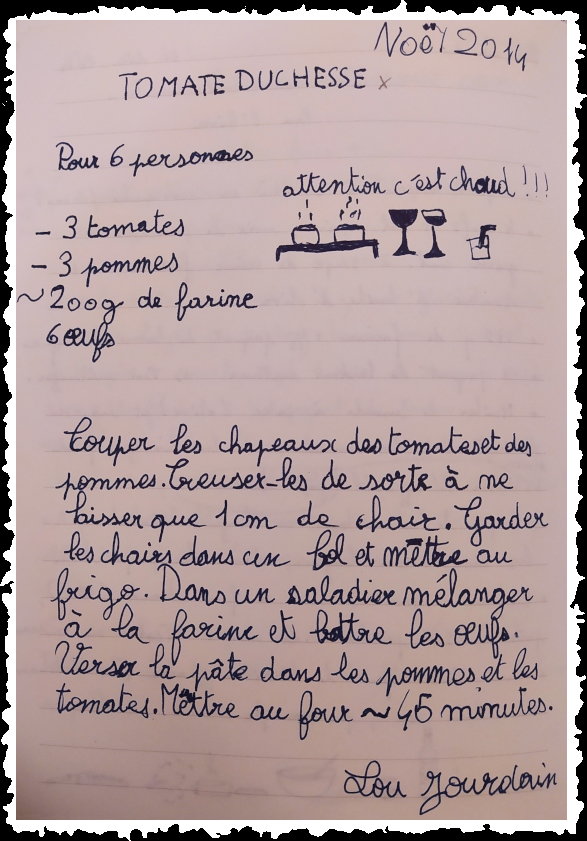 Noël 2014
TOMATE DUCHESSE x
Pour 6 personnes
attention c'est chaud !!!
- 3 tomates
- 3 pommes
~ 200g de farine
6 œufs
Couper les chapeaux des tomates et des
pommes. Creuser-les de sorte à ne
laisser que 1 cm de chair. Garder
les chairs dans un bol et mettre au
frigo. Dans un saladier mélanger
à la farine et battre les œufs.
Verser la pâte dans les pommes et les
tomates. Mettre au four ~ 45 minutes.
Lou Jourdain